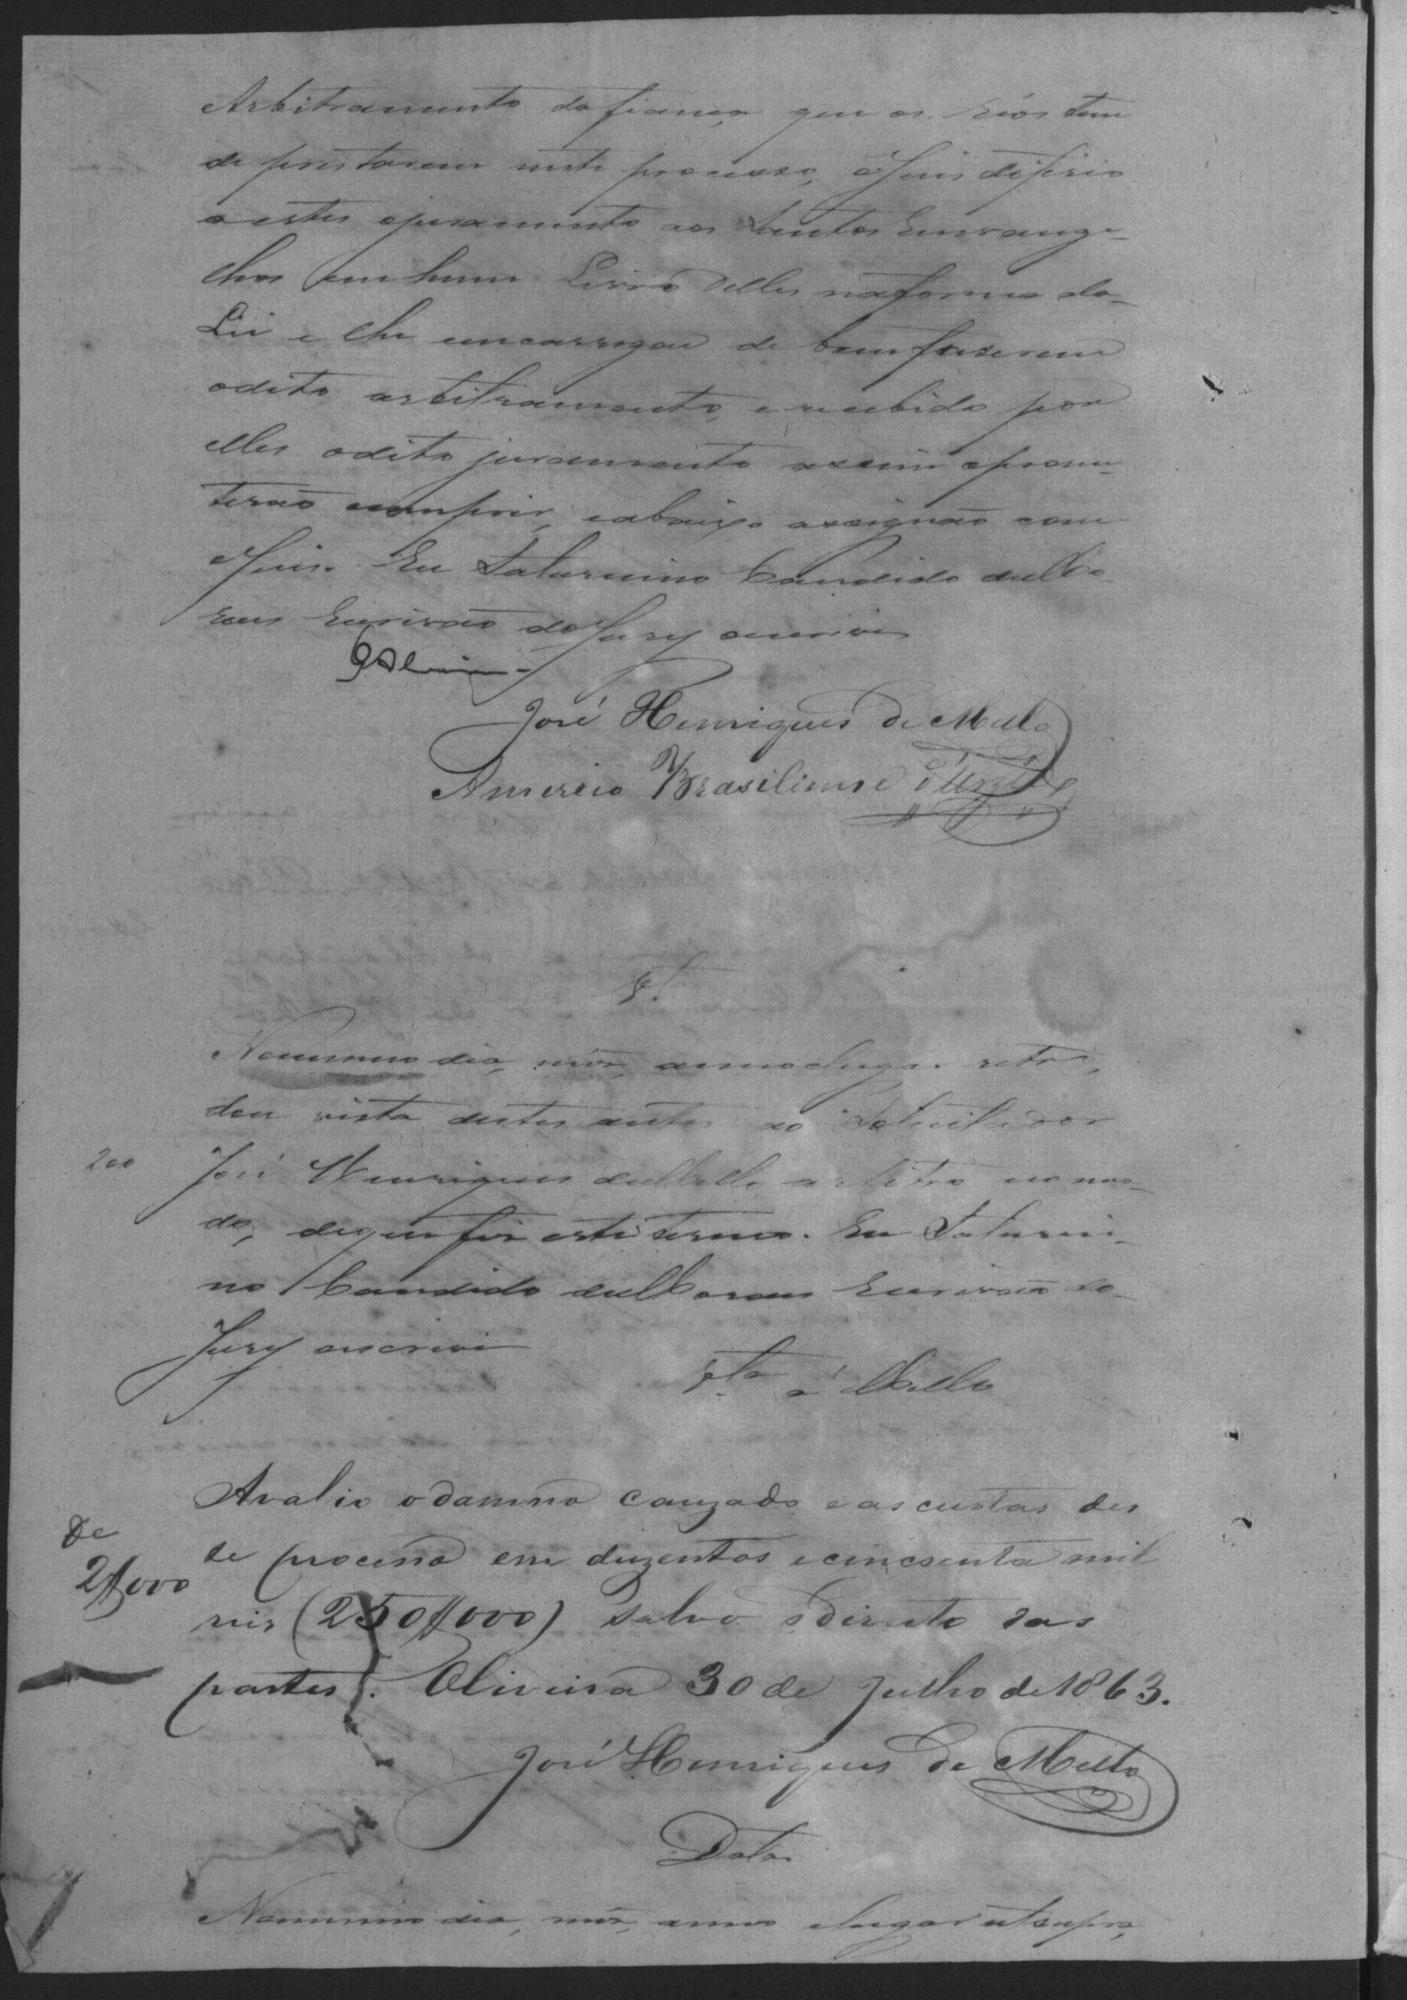 Arbitramento da fiança que os Réos tem
de prestarem neste processo, o Juis diferio
a estes ojuramento aos Santos Envange-
lhos em hum Livro delles na forma da-
Lei e lhe encarregou de bem faserem
odito arbitramento, e recebido por
elles odito juramento assim oprome-
terão cumprir, eabaixo assignão com o
Juis. Eu Saturnino Candido de Mo-
raes Escrivão do Jury oescrivi
José Henriques de Mello
Americo Brasiliense
V.ta
No mesmo dia, mês, anno elugar retro,
dou vista destes autos ao Solicitador
200
José Henriques de Mello arbitro nomea-
do, deque fis este termo. Eu Saturni-
no Candido de Moraes Escrivão do
Jury oescrivi
V.ta a Mello
Avalio o damno cauzado e as custas des
te processo em duzentos e cincoenta mil
De
2$000
reis (250$000) salvo o direito das
partes. Oliveira 30 de Julho de 1863.
José Henriques de Mello
Data
No mesmo dia, mês, anno elugar utsupra,